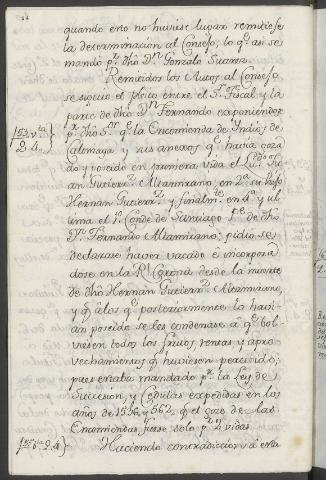 quando esto no huviese lugar remitiese
la determinacion al Consejo, lo q.e asi se
mando p.r dho D.n Gonzalo Suarez.
Remitidos los Autos al Consejo
se siguio el pleito entre el S.r Fiscal, y la
parte de dho D.n Fernando exponiendoz
p.r dho S.r q.e la Encomienda de Indios de
Calimaya y sus anexos q.e havia goza
do y poseido en primera vida el Lic.do Ju
an Gutierr.z Altamirano, en 2.a su hijo
Hernan Gutierr.z y finalm.te en 4.a y ul
tima el 1.o Conde de Santiago de dho
D.n Fernando Altamirano: pidio se
declarase haver vacado è incorpora
dose en la R.l Corona desde la muerte
de dho Hernan Gutierr.z Altamirano,
y q.e à los q.e posteriormente la havi
an poseido se les condenase à q.e bol
viesen todos los frutos rentas y apro
vechamientos q.e huviesen percivido;
pues estaba mandado p.r la Ley de
Succesion, y Cedulas expedidas en los
años de 1536, y 562, q.e el goze de las
Encomiendas fuese solo p.r 2 vidas.
Haciendo contradiccion à esta